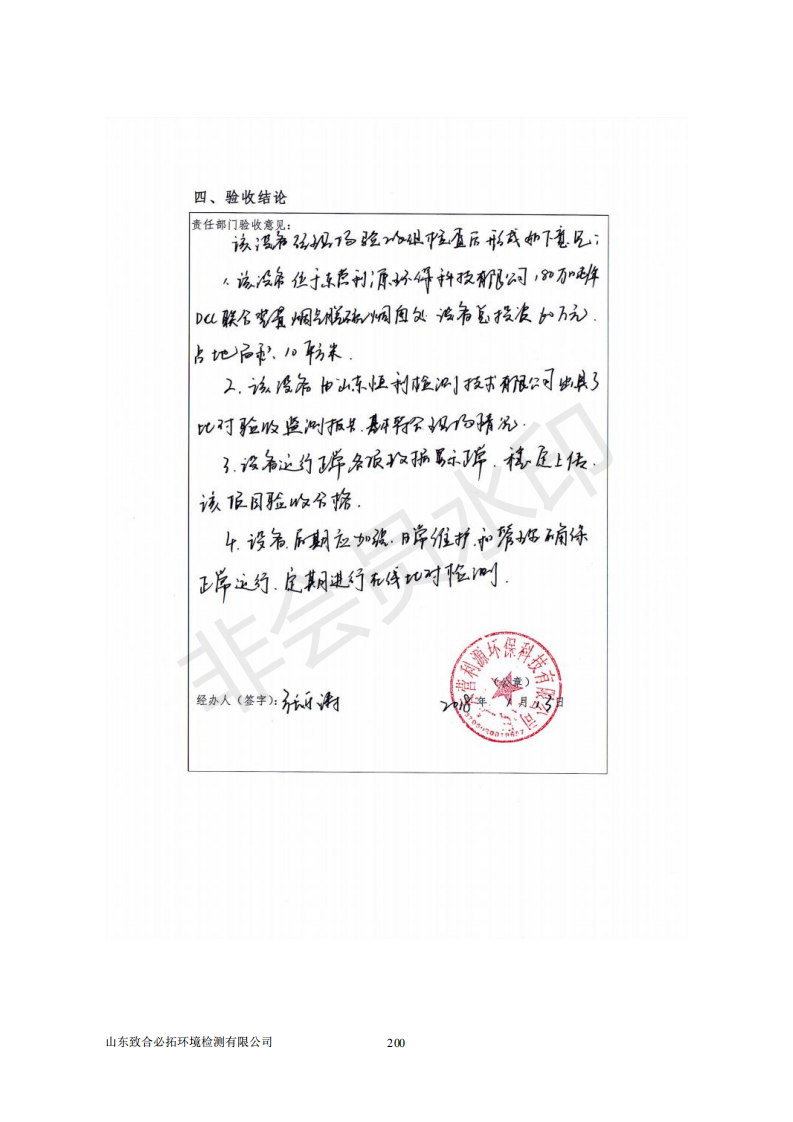 四、验收结论
责任部门验收意见:
该设备经现场验收组检查后形成如下意见:
1.该设备位于东营利源环保科技有限公司180万吨/年
DCC联合装置烟气脱硫烟囱处 设备总投资80万元.
占地面积10平方米.
2.该设备由山东恒利检测技术有限公司出具了
比对验收监测报告.基本符合现场情况.
3.设备运行正常各项数据显示正常.稳定上传.
该项目验收合格.
4.设备后期应加强日常维护和管理确保
正常运行.定期进行在线比对检测.
营利源环保科技有限公司
(公章)
经办人(签字):
2018年 月 日
非会员水印
山东致合必拓环境检测有限公司 200